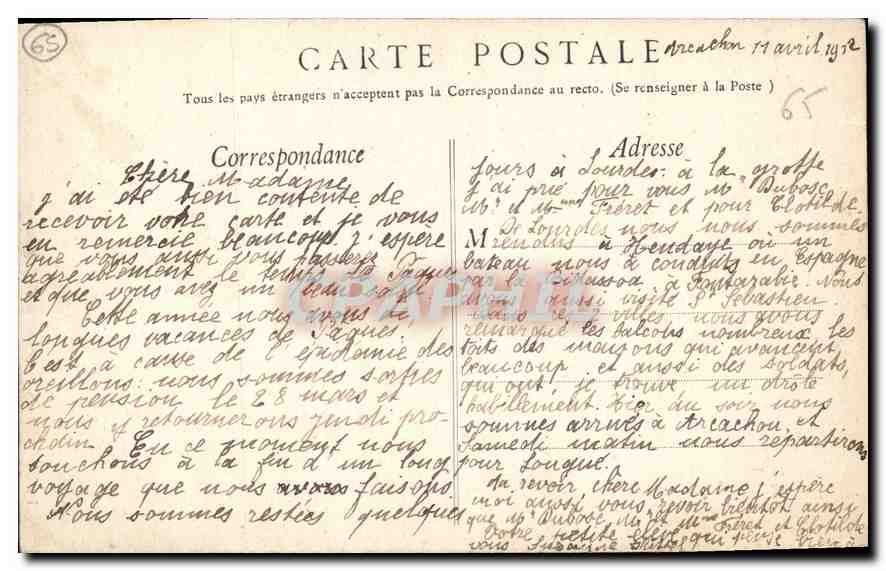 65
CARTE POSTALE
Arcachon 11 avril 1912
Tous les pays étrangers n'acceptent pas la Correspondance au recto. (Se renseigner à la Poste)
65
Correspondance
Chère Madame
j'ai été bien contente de
recevoir votre carte et je vous
en remercie beaucoup j'espère
que vous aussi vous passerez
agréablement le temps de Pâques
et que vous avez un beau soleil
Cette année nous avons de
longues vacances de Pâques
c'est à cause de l'épidémie des
oreillons: nous sommes sorties
de pension le 28 mars et
nous y retournerons jeudi pro-
chain. En ce moment nous
touchons à la fin d'un long
voyage que nous avons faisons
Nous sommes restées quelques
Adresse
jours à Lourdes: à la grotte
j'ai prié pour vous Mr Dubosc,
Mr et Mme Fréret et pour Clotilde.
De Lourdes nous nous sommes
M
rendus à Hendaye où un
bateau nous a conduits en Espagne
par la Bidassoa à Fontarabie. Nous
avons aussi visité St Sébastien.
Dans ces villes nous avons
remarqué les balcons nombreux les
toits des maisons qui avancent
beaucoup et aussi des soldats,
qui ont je trouve un drôle
habillement. Hier au soir nous
sommes arrivés à Arcachon et
Samedi matin nous repartirons
pour Longué.
Au revoir chère Madame j'espère
moi aussi vous revoir bientôt ainsi
que Mr Dubosc Mr et Mme Fréret et Clotilde
Votre petite élève qui
vous Suzanne
CPAPHIL